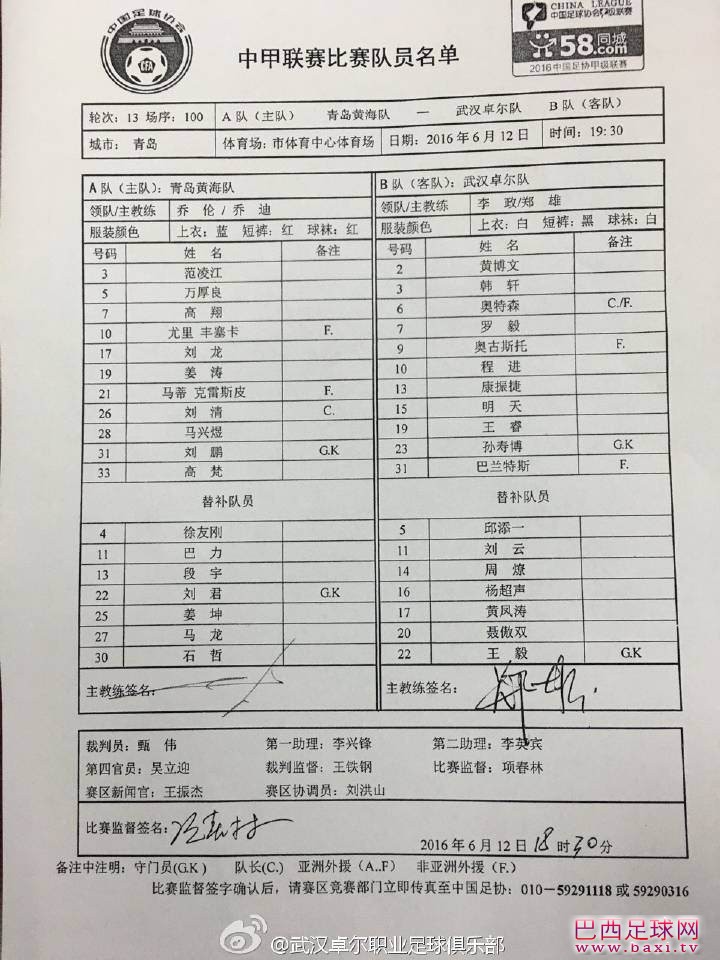 中国足球协会
CFA
CHINA LEAGUE
中国足球协会甲级联赛
58同城
58.com
2016中国足协甲级联赛
中甲联赛比赛队员名单
轮次：13 场序：100 A 队（主队） 青岛黄海队 — 武汉卓尔队 B 队（客队）
城市：青岛 体育场：市体育中心体育场 日期：2016 年 6 月 12 日 时间：19:30
A 队（主队）：青岛黄海队
领队/主教练 乔 伦 / 乔 迪
服装颜色 上衣：蓝 短裤：红 球袜：红
号码 姓 名 备注
3 范凌江
5 万厚良
7 高 翔
10 尤里 丰塞卡 F.
17 刘 龙
19 姜 涛
21 马蒂 克雷斯皮 F.
26 刘 清 C.
28 马兴煜
31 刘 鹏 G.K
33 高 梵
替补队员
4 徐友刚
11 巴 力
13 段 宇
22 刘 君 G.K
25 姜 坤
27 马 龙
30 石 哲
主教练签名：
B 队（客队）：武汉卓尔队
领队/主教练 李 政/郑 雄
服装颜色 上衣：白 短裤：黑 球袜：白
号码 姓 名 备注
2 黄博文
3 韩 轩
6 奥特森 C./F.
7 罗 毅
9 奥古斯托 F.
10 程 进
13 康振捷
15 明 天
19 王 睿
23 孙寿博 G.K
31 巴兰特斯 F.
替补队员
5 邱添一
11 刘 云
14 周 燎
16 杨超声
17 黄凤涛
20 聂傲双
22 王 毅 G.K
主教练签名：
裁判员：甄 伟 第一助理：李兴锋 第二助理：李英宾
第四官员：吴立迎 裁判监督：王铁钢 比赛监督：项春林
赛区新闻官：王振杰 赛区协调员：刘洪山
比赛监督签名：
2016 年 6 月 12 日 18 时 30 分
备注中注明：守门员(G.K ) 队长(C.) 亚洲外援（A..F） 非亚洲外援（F.）
比赛监督签字确认后，请赛区竞赛部门立即传真至中国足协：010—59291118 或 59290316
@武汉卓尔职业足球俱乐部
巴西足球网
www.baxi.tv